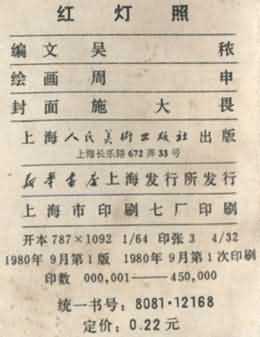 红灯照
编文吴秾
绘画周申
封面施大畏
上海人民美術出版社出版
上海长乐路672弄33号
新华書店上海发行所发行
上海市印刷七厂印刷
开本787×1092 1/64 印张3 4/32
1980年9月第1版 1980年9月第1次印刷
印数 000,001—450,000
统一书号：8081·12168
定价：0.22元